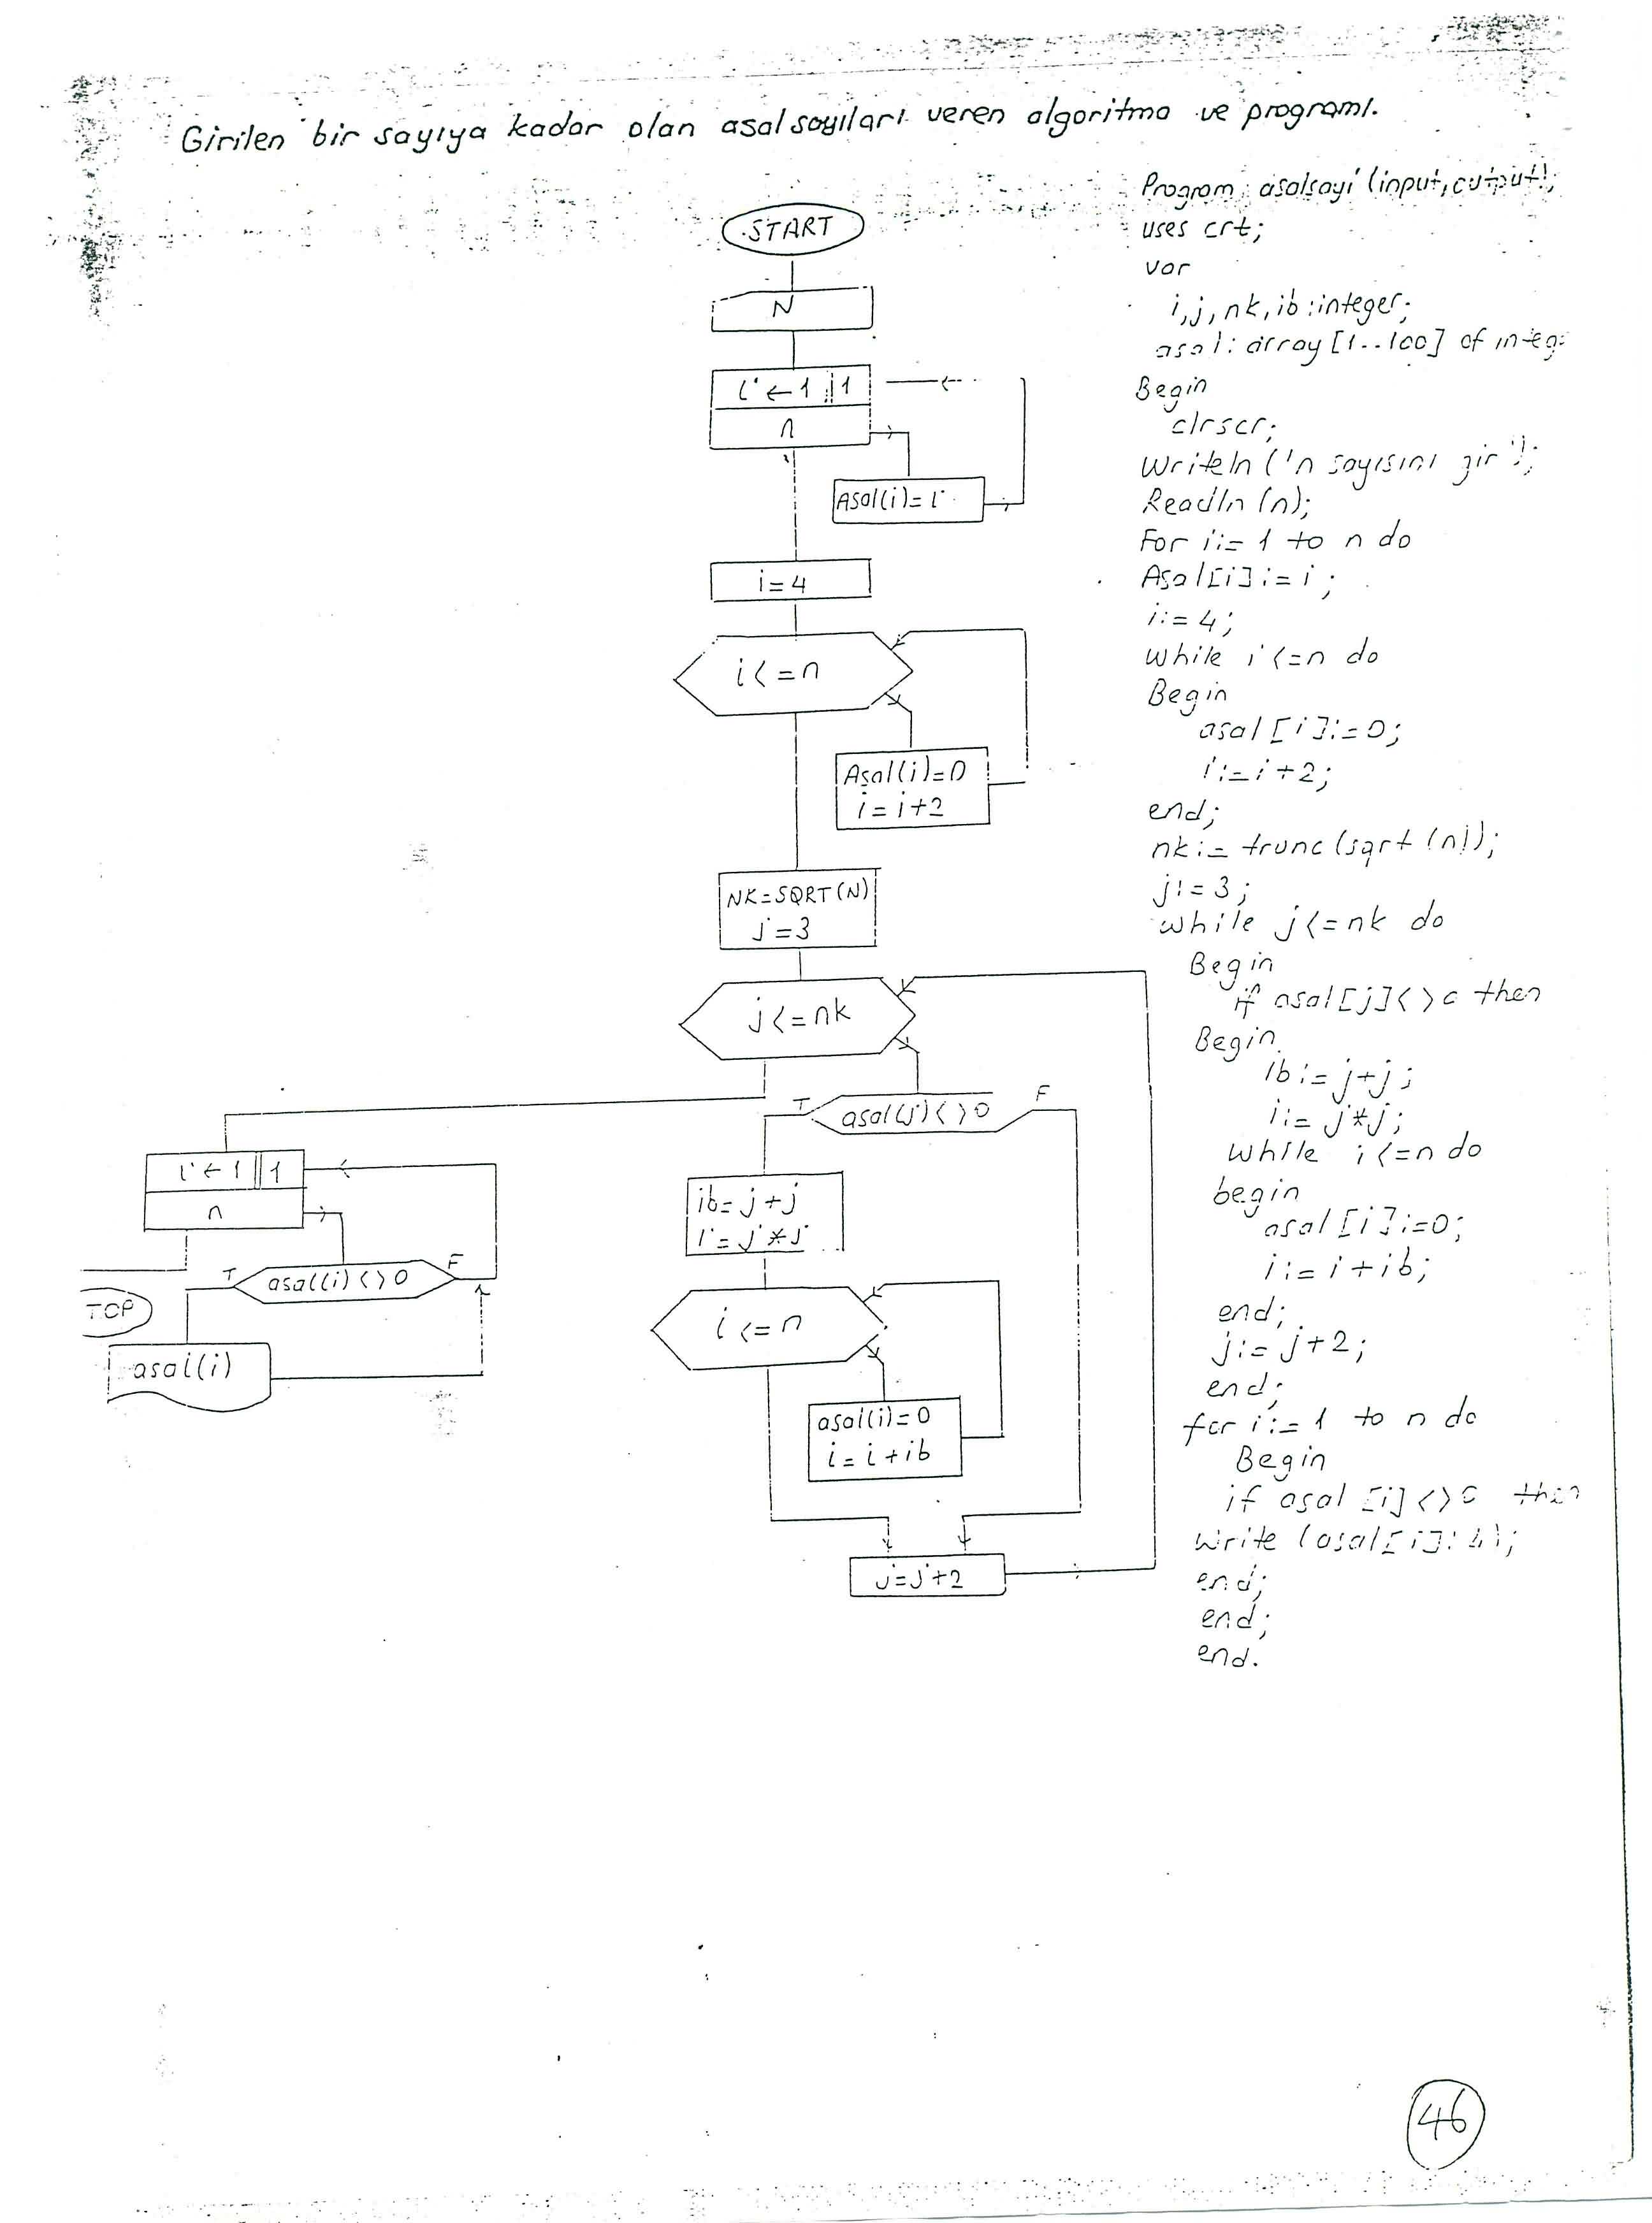 Girilen bir sayıya kadar olan asal sayıları veren algoritma ve programı.
START
N
i ← 1 || 1
n
Asal(i)=i
i=4
i<=n
Asal(i)=0
i=i+2
NK=SQRT(N)
j=3
j<=nk
T
asal(j)<>0
F
ib=j+j
i=j*j
i<=n
asal(i)=0
i=i+ib
j=j+2
i ← 1 || 1
n
T
asal(i)<>0
F
TOP
asal(i)
Program asalsayi (input, output);
uses crt;
var
i,j,nk,ib:integer;
asal: array [1..100] of integ
Begin
clrscr;
Writeln ('n sayısını gir');
Readln (n);
For i:= 1 to n do
Asal[i]:= i;
i:= 4;
while i<=n do
Begin
asal[i]:=0;
i:=i+2;
end;
nk:= trunc(sqrt(n));
j:=3;
while j<=nk do
Begin
if asal[j]<>0 then
Begin
ib:= j+j;
i:= j*j;
while i<=n do
begin
asal[i]:=0;
i:= i+ib;
end;
j:= j+2;
end;
for i:=1 to n do
Begin
if asal[i]<>0 then
Write (asal[i]:4);
end;
end;
end.
46